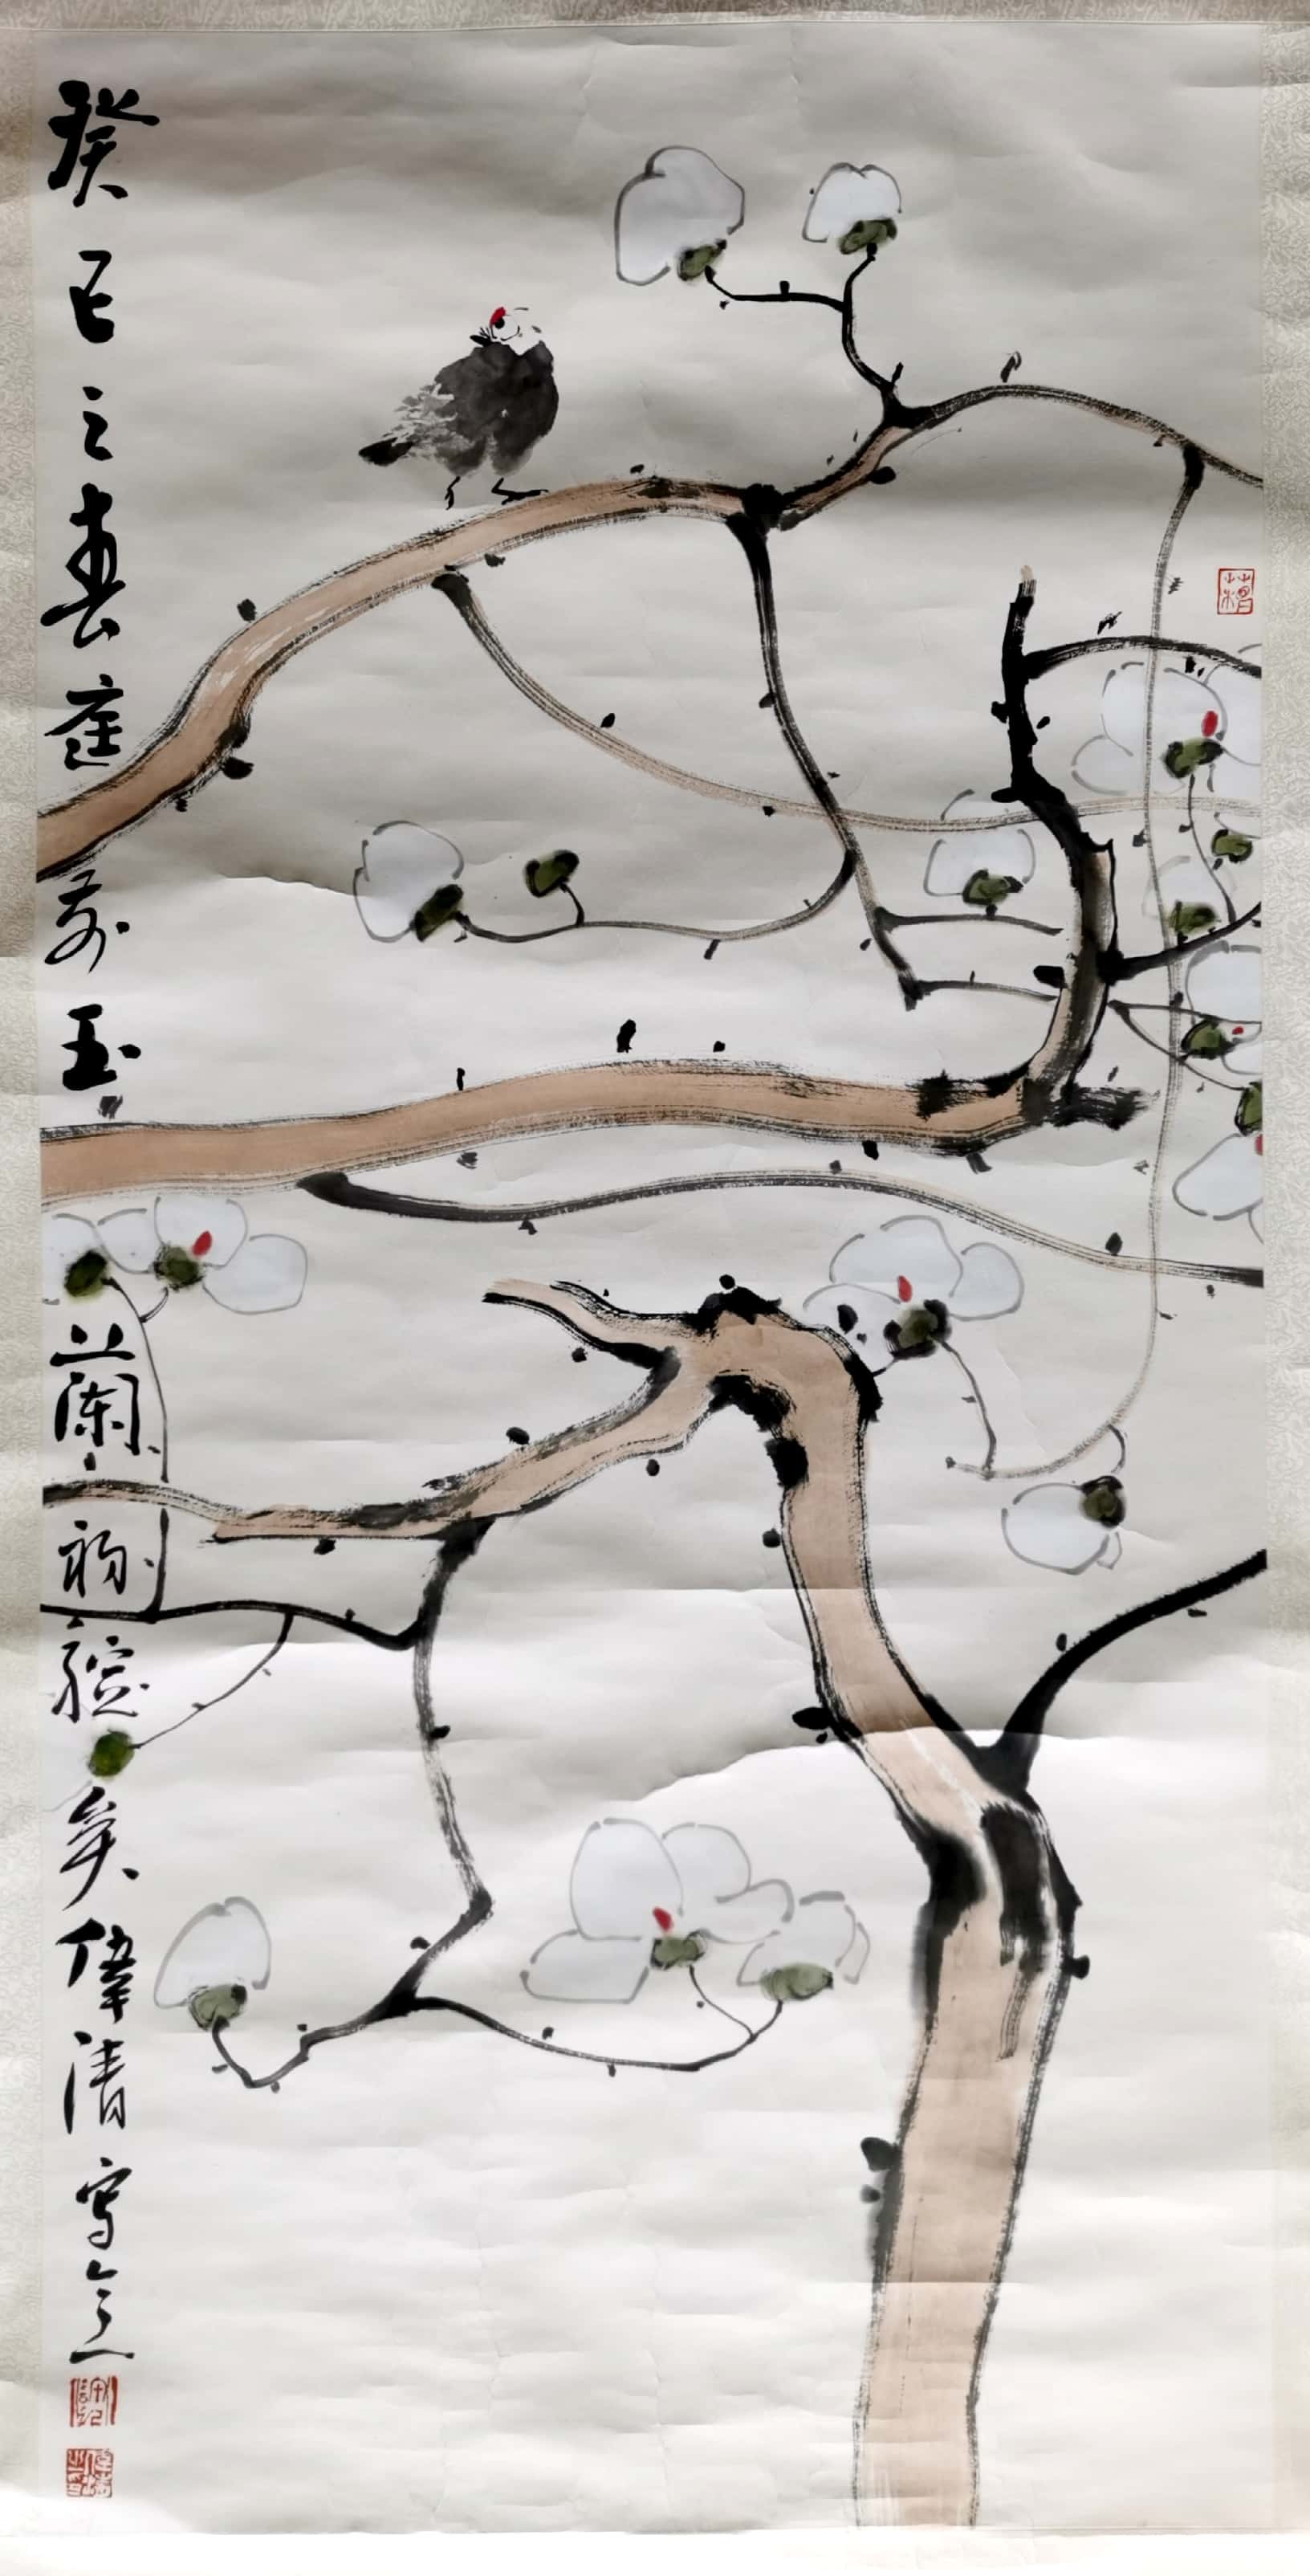 癸巳之春庭前玉兰初綻矣偉清寫之